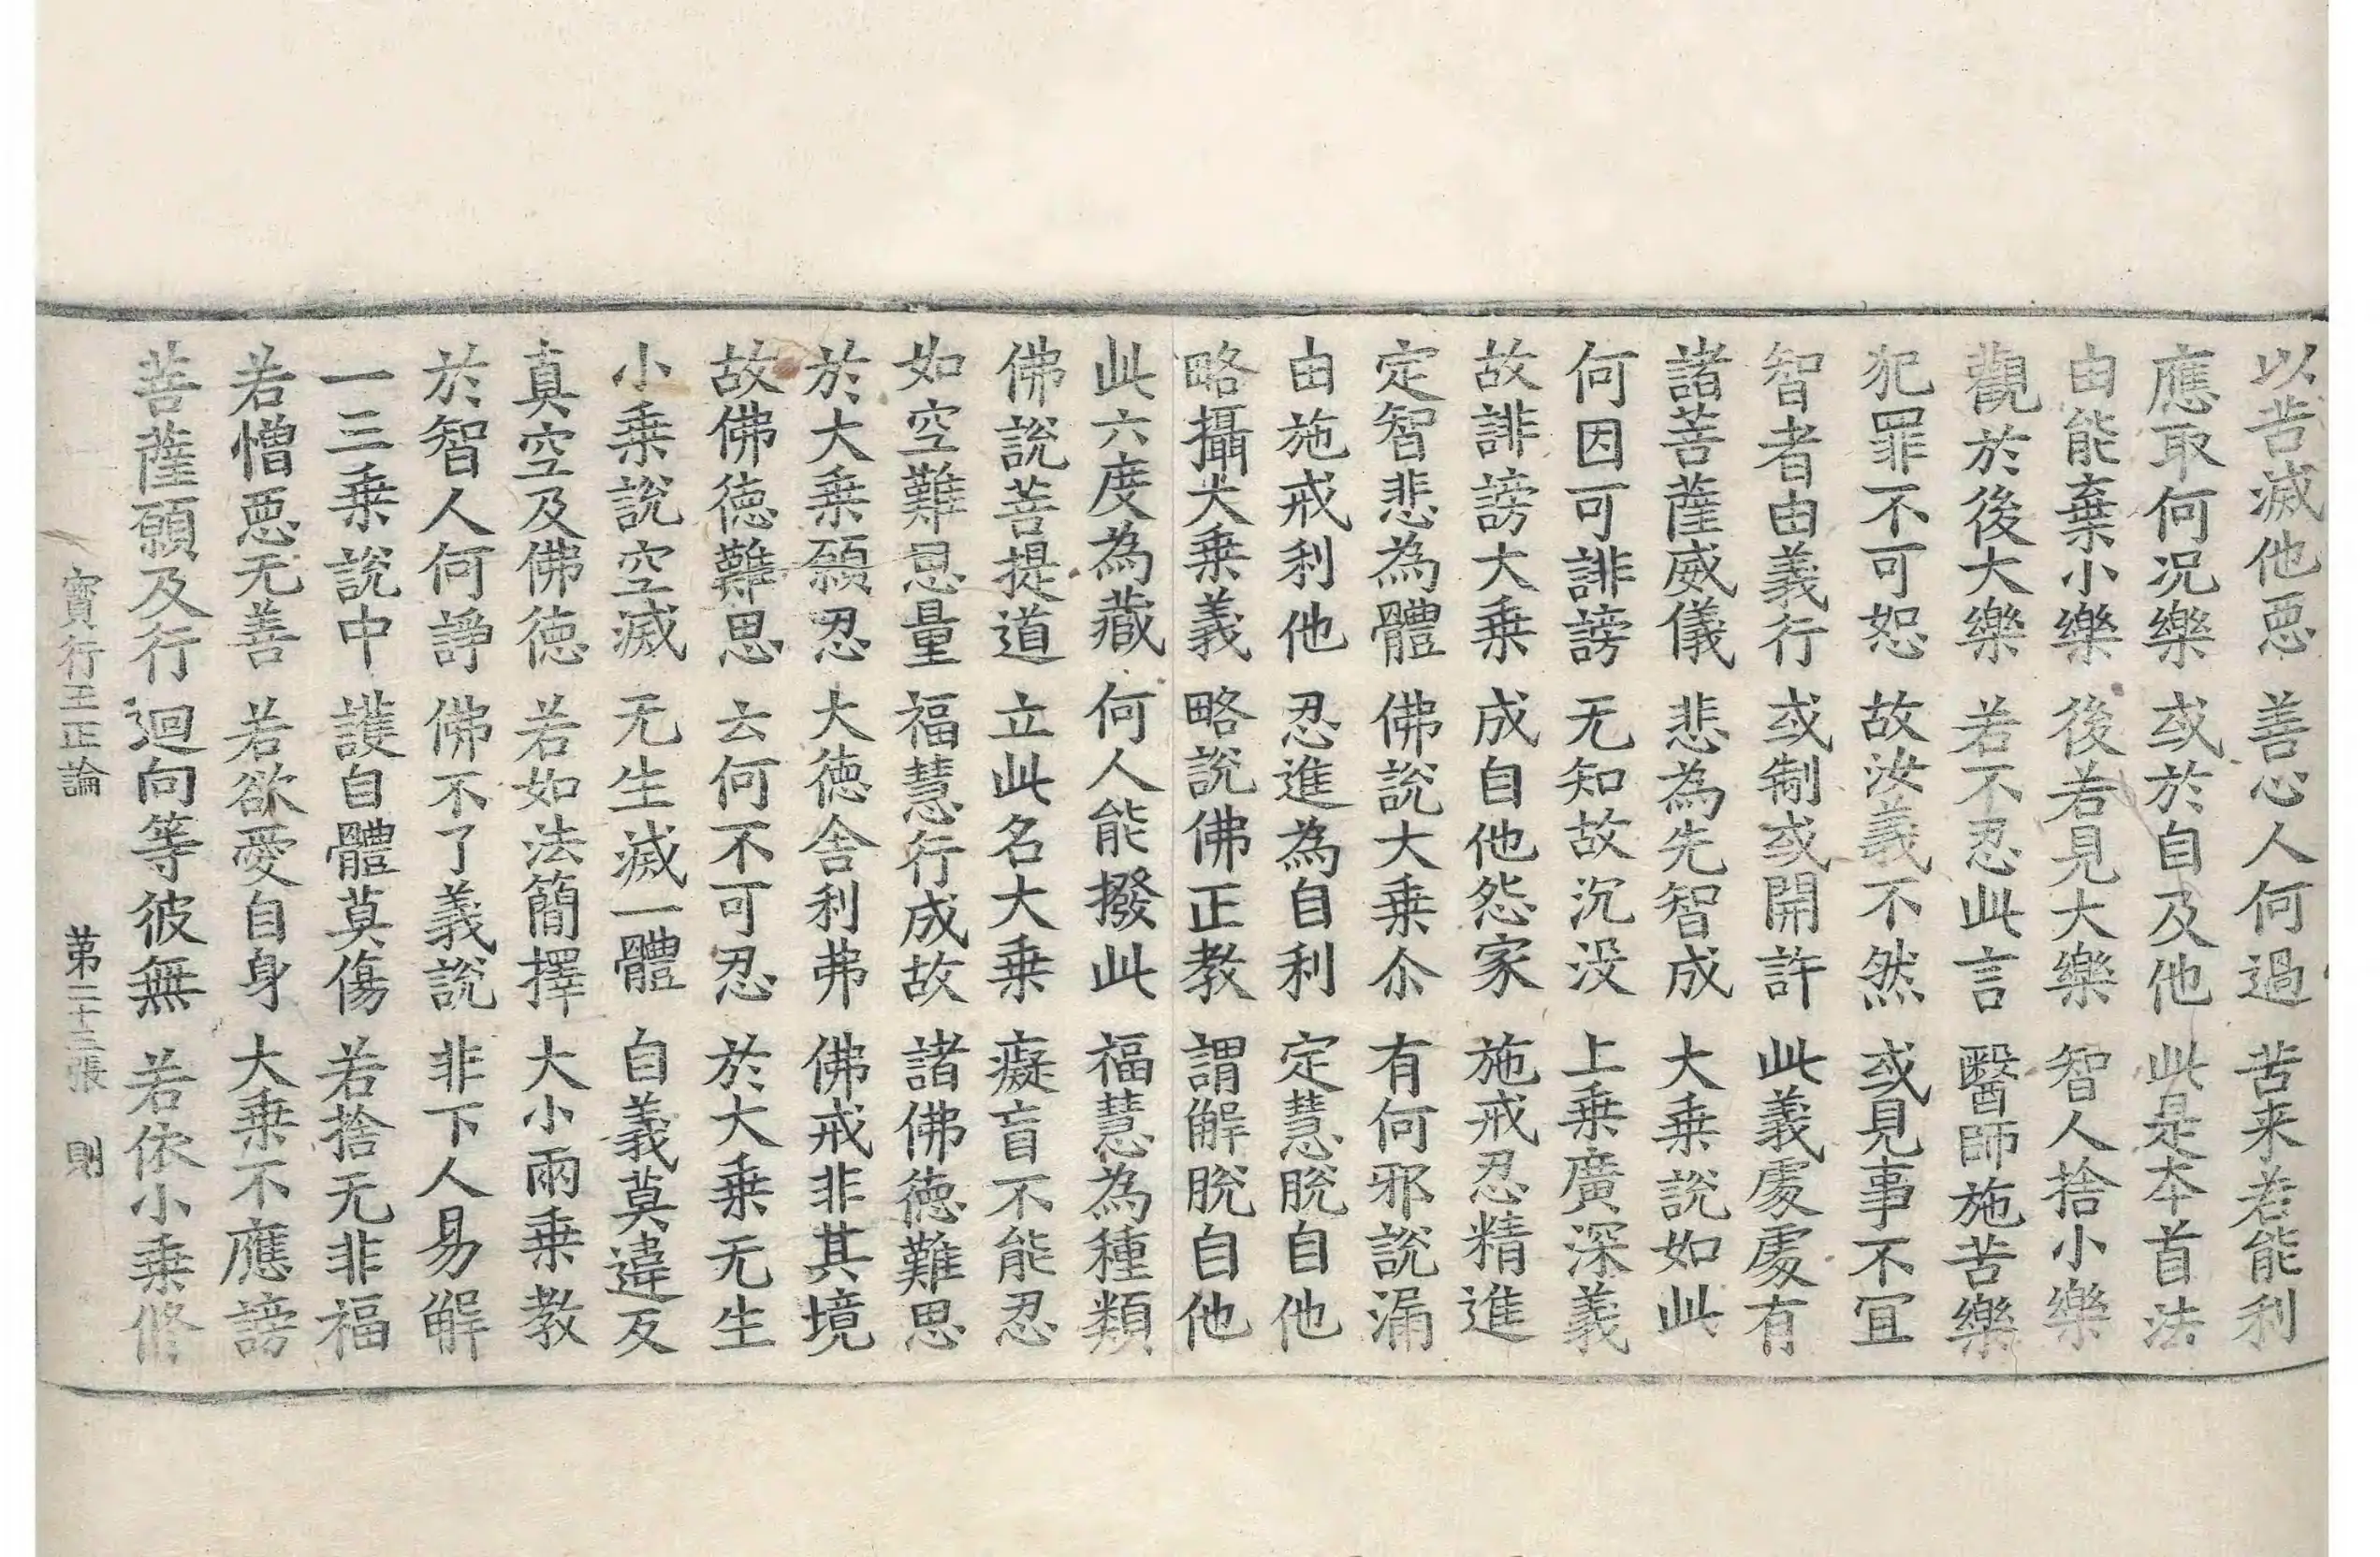 以苦滅他悪　善心人何過　苦来若能利
應取何况樂　或於自及他　此是本首法
由能棄小樂　後若見大樂　智人捨小樂
觀於後大樂　若不忍此言　醫師施苦樂
犯罪不可恕　故汝義不然　或見事不冝
智者由義行　或制或開許　此義處處有
諸菩薩威儀　悲為先智成　大乗說如此
何因可誹謗　无知故沉没　上乗廣深義
故誹謗大乗　成自他怨家　施戒忍精進
定智悲為體　佛說大乗尒　有何邪說漏
由施戒利他　忍進為自利　定慧脫自他
略攝大乗義　略說佛正教　謂解脫自他
此六度為藏　何人能撥此　福慧為種類
佛說菩提道　立此名大乗　癡盲不能忍
如空難思量　福慧行成故　諸佛德難思
於大乗願忍　大德舍利弗　佛戒非其境
故佛德難思　云何不可忍　於大乗无生
小乗說空滅　无生滅一體　自義莫違反
真空及佛德　若如法簡擇　大小兩乗教
於智人何諍　佛不了義說　非下人易解
一三乗說中　護自體莫傷　若捨无非福
若憎悪无善　若欲愛自身　大乗不應謗
菩薩願及行　迴向等彼無　若依小乗修
寳行王正論　第二十三張　則